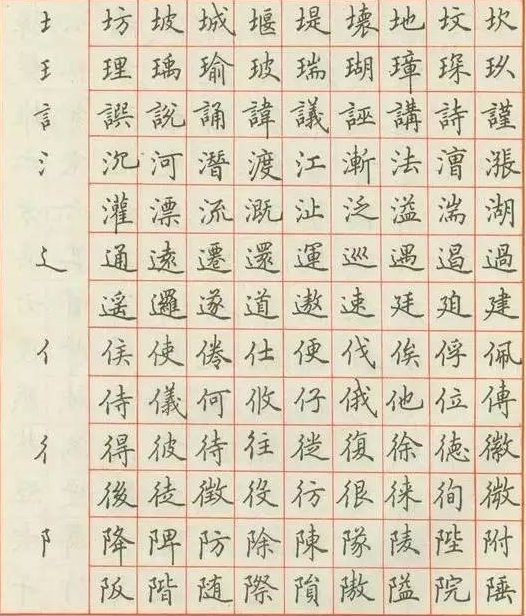 土 坊 坡 城 堰 堤 壞 地 坟 坎
王 理 瑀 瑜 玻 瑞 瑚 璋 琛 玖
訁 誤 說 誦 諱 議 誣 講 詩 謹
氵 沉 河 潛 渡 江 漸 法 漕 漲
灌 漂 流 溉 沚 泛 溢 湍 湖
辶 通 遠 遷 還 運 巡 遇 遏 過
遥 邏 遂 道 遨 速 廷 建
亻 侯 使 倦 仕 便 伐 俟 俘 佩
侍 儀 何 攸 仔 俄 他 位 傳
彳 得 彼 待 往 從 復 徐 德 徽
後 徒 徵 役 彷 很 徠 徇 微
阝 降 陴 防 除 陳 隊 陵 陛 附
阪 階 随 際 隕 隘 院 陲